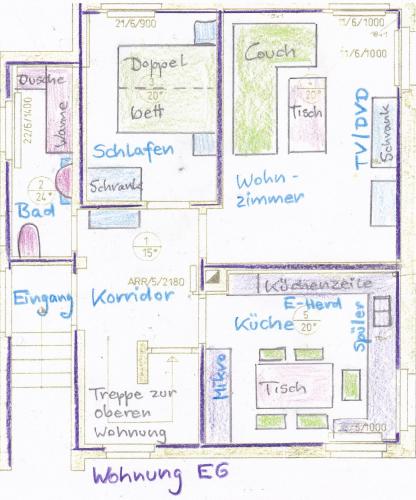 21/6/900
11/6/1000
Dusche
Doppel
bett
3
20°
Couch
11/6/1000
4
20°
Tisch
22/6/1400
Wanne
Schlafen
TV/DVD
Schrank
Schrank
Wohn-
zimmer
2
24°
Bad
1
15°
ARR/5/2180
Eingang
Korridor
Küchenzeile
E-Herd
Küche
5
20°
Spüler
Mikro
Tisch
Treppe zur
oberen
Wohnung
Wohnung EG